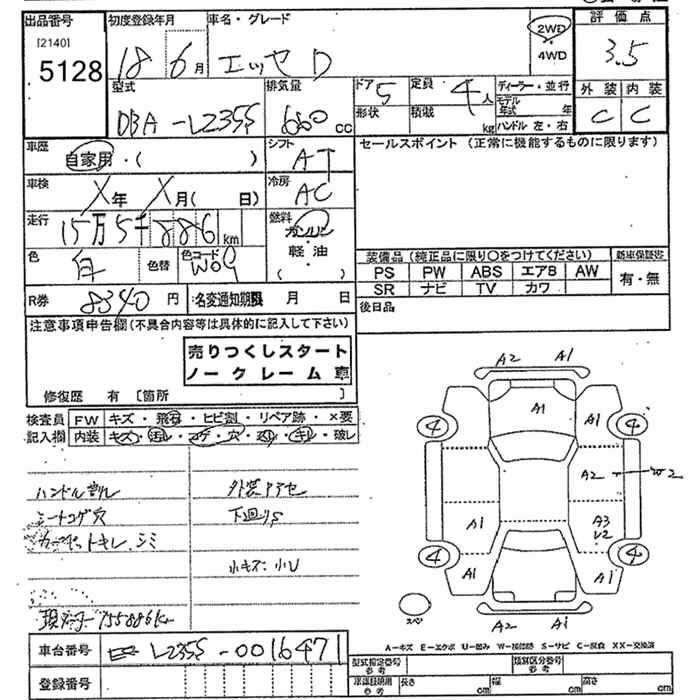 出品番号 初度登録年月 車名・グレード 評価点
[2140]
5128 18 6月 エッセ D 2WD
・
4WD 3.5
型式 排気量 ドア 5 定員 4人 ディーラー・並行 外装 内装
DBA-L235S 660cc 形状 積載 kg モデル年式 年 C C
ハンドル 左・右
車歴 自家用・( ) シフト AT セールスポイント (正常に機能するものに限ります)
車検 X年 X月( 日) 冷房 AC
走行 15万5千886km 燃料 ガソリン
軽油
( )
色 白 色替 色コード W09
装備品 (純正品に限り○をつけてください) 新車保証書
PS PW ABS エアB AW 有・無
SR ナビ TV カワ
R券 8340円 名変通知期限 月 日 後日品
注意事項申告欄(不具合内容等は具体的に記入して下さい)
売りつくしスタート
ノークレーム車
修復歴 有 [箇所 ]
検査員 FW キズ・飛石・ヒビ割・リペア跡・×要
記入欄 内装 キズ・汚れ・コゲ・穴・スレ・キレ・破レ
ハンドルスレ 外装アテセ
シートコゲ穴 下回りS
カーペットキレ、シミ
小キズ、小U
現メーター155886km
A2 A1
A1 A1
4 4
A2 W2
A1 A3
V2
4 4
A1 A1
スペア
A2 A1
A-キズ E-エクボ U-凹み W-補修跡 S-サビ C-腐食 XX-交換済
車台番号 L235S-0016471
登録番号
型式指定番号
参考 類別区分番号
参考
車庫証明用
参考 長さ cm 幅 cm 高さ cm